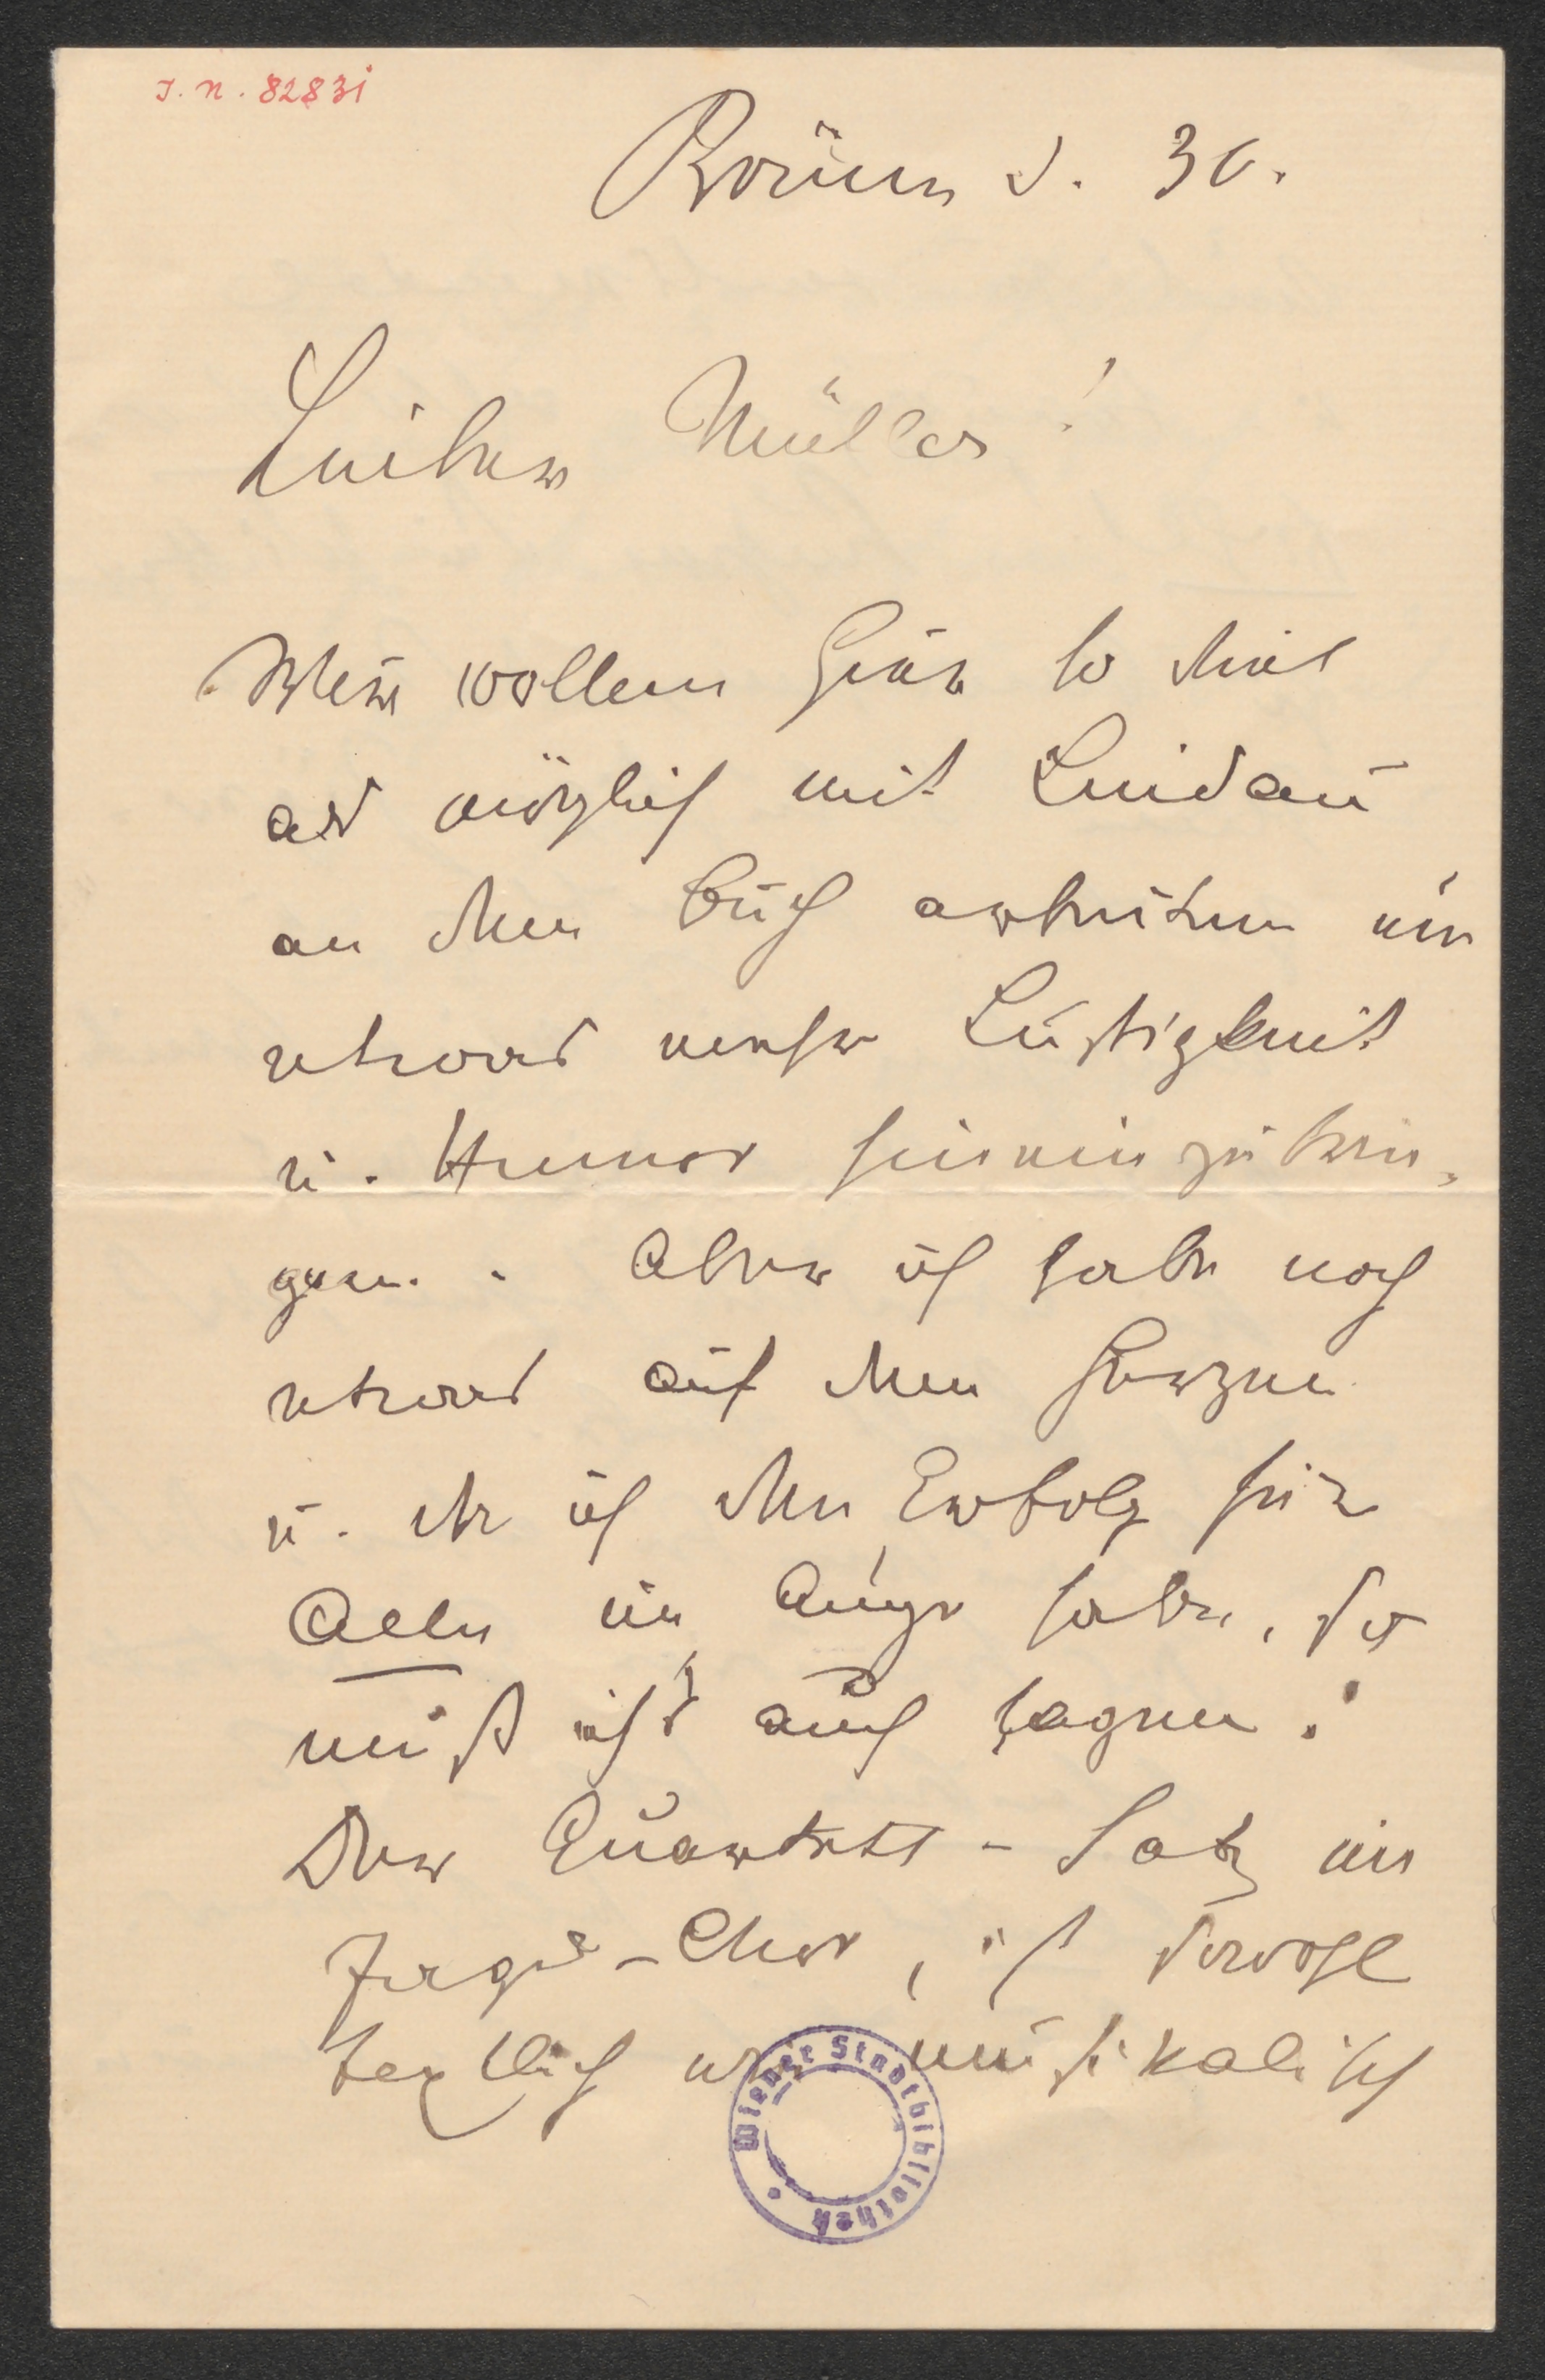 I. N. 82831
Brünn d. 30.
Lieber Müller!
Wir wollen hier so viel
als möglich mit Lindau
an dem Buch arbeiten um
etwas mehr Lustigkeit
u. Humor hineinzubrin-
gen. Aber ich habe noch
etwas auf dem Herzen
u. da ich den Erfolg für
Alle im Auge habe, so
muß ich's auch sagen!
Der Quartett-Satz im
-Chor, ist sowohl
textlich wie musikalisch
Wiener Stadtbibliothek